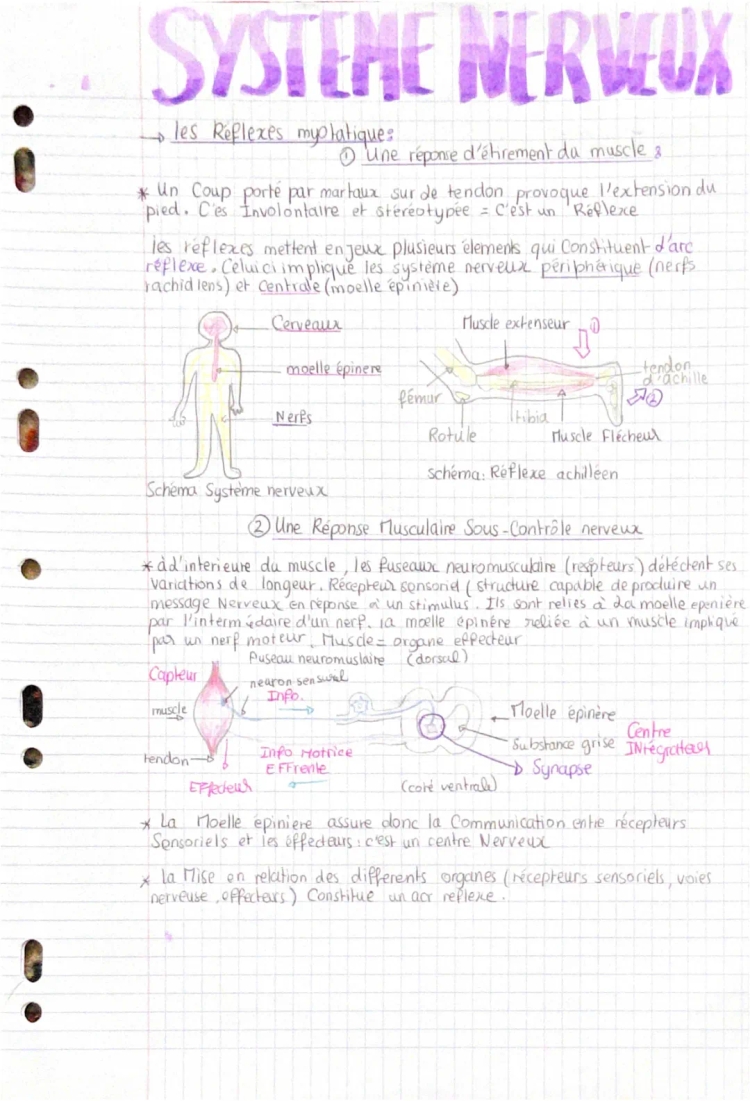 SYSTEME NERVEUX
→ les Réflexes myotatique:
① Une réponse d'étirement du muscle :
* Un Coup porté par martaux sur de tendon provoque l'extension du
pied. C'es Involontaire et stéréotypée = C'est un Réflexe
les réflexes mettent en jeux plusieurs élements qui Constituent d'arc
réflexe. Celui ci implique les système nerveux périphérique (nerfs
rachidiens) et centrale (moelle épinière)
Cerveaux
moelle épinere
Nerfs
Schéma Système nerveux
Muscle extenseur ①
tendon
d'achille
②
fémur
tibia
Rotule
Muscle Flécheur
schéma: Réflexe achilléen
② Une Réponse Musculaire Sous-Contrôle nerveux
* à d'interieure du muscle, les fuseaux neuromusculaire (respteurs) détéctent ses
variations de longeur. Récepteur sensoriel (structure capable de produire un
message Nerveux en réponse a un stimulus. Ils sont reliés à da moelle epenière
par l'intermédaire d'un nerf. la moelle épinère reliée à un muscle impliqué
par un nerf moteur. Muscle = organe effecteur
fuseau neuromuslaire (dorsal)
Capteur
neuron sensuwal
Info.
muscle
Moelle épinère
Substance grise
Centre
INtégrateur
tendon
Info Motrice
EFFrente
Synapse
EFFecteur
(coté ventrale)
* La Moelle épinière assure donc la Communication entre récepteurs
Sensoriels et les éffecteurs : c'est un centre Nerveux
* la Mise en relation des differents organes (récepteurs sensoriels, voies
nerveuse, effecteurs) Constitué un acr reflexe.